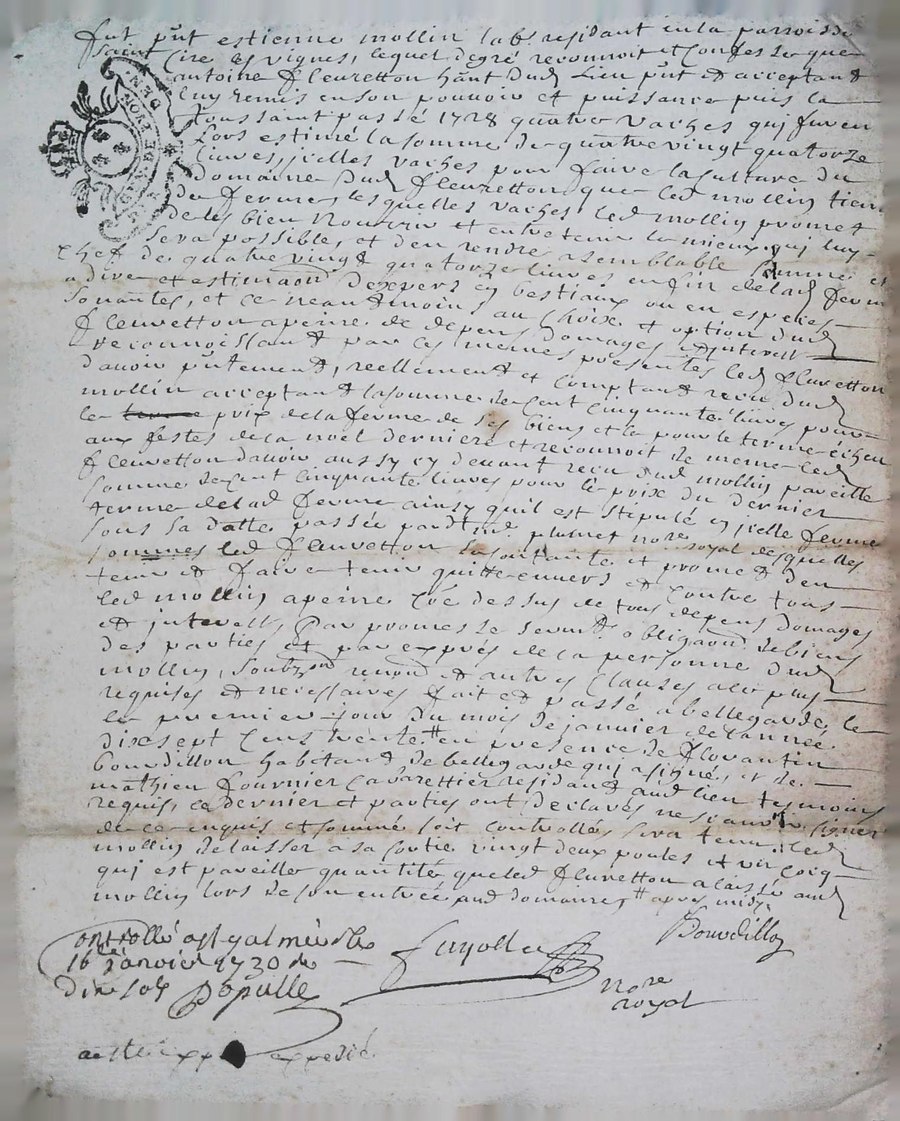 fut pnt estienne mollin lab. residant en la parroisse
saint Cire les vignes, lequel degré reconnoit et Confesse que
antoine fleuretton hant dud lieu pnt et acceptant
luy remis en son pouvoir et puissance puis la
toussaint passé 1728 quatre vaches qui furen
lors estimé la somme de quatre vingt quatorze
livres, jcelles vaches pour faire la culture du
domaine dud fleuretton que led mollin tien
de ferme, lesquelles vaches led mollin promet
de les bien nourrir et entretenir le mieux qui luy
sera possible, et den rendre semblable somme et
Chef de quatre vingt quatorze livres en fin de lad ferme
a dire et estimaon dexpers en bestiaux ou en espesses
sonantes, et ce neandmoins au choix et option dud
fleuretton a peine de depens domages et interest
reconnoissant par ces memes presentes led fleuretton
davoir pntement, reellement et comptant receu dud
mollin acceptant la somme de cent cinquante livres pour
le prix de la ferme de ses biens et ce pour le terme écheu
aux festes de la noel derniere et reconnoit de meme led
fleuretton davoir aussy cy devant receu dud mollin pareille
somme de cent cinquante livres pour le prix du dernier
terme de lad ferme ainsy quil est stipulé en jcelle ferme
sous sa datte passée pardt me plunet nore royal desquelles
sommes led fleuretton se contente et promet den
tenir et faire tenir quitte envers et contre tous
led mollin a peine cõe dessus de tous depens domages
et interests, Par promesse sermt obligaon de biens
des parties et par exprés de la personne dud
mollin, soubz on renon et autres clauses a ce plus
requises et necessaires fait et passé a bellegarde, le
le premier jour du mois de janvier de lannée
dixsept cens trente # en presence de florantin
bourdillon habitant de bellegarde qui a signé, et de
mathieu fournier cabarettier residant aud lieu tesmoins
requis, ce dernier et parties ont declarés ne scavoir signer
de ce enquis et sommé soit controllés sera tenu led
mollin de laisser a sa sortie vingt deux poules et un coiq
qui est pareille quantité que led fleuretton a laissé aud
mollin lors de son entrée aud domaine, # apres midy
Bourdillon
Controllé a st galmier le
16e janvier 1730 de
dix sols Populle
fayolle
nore
royal
expedié